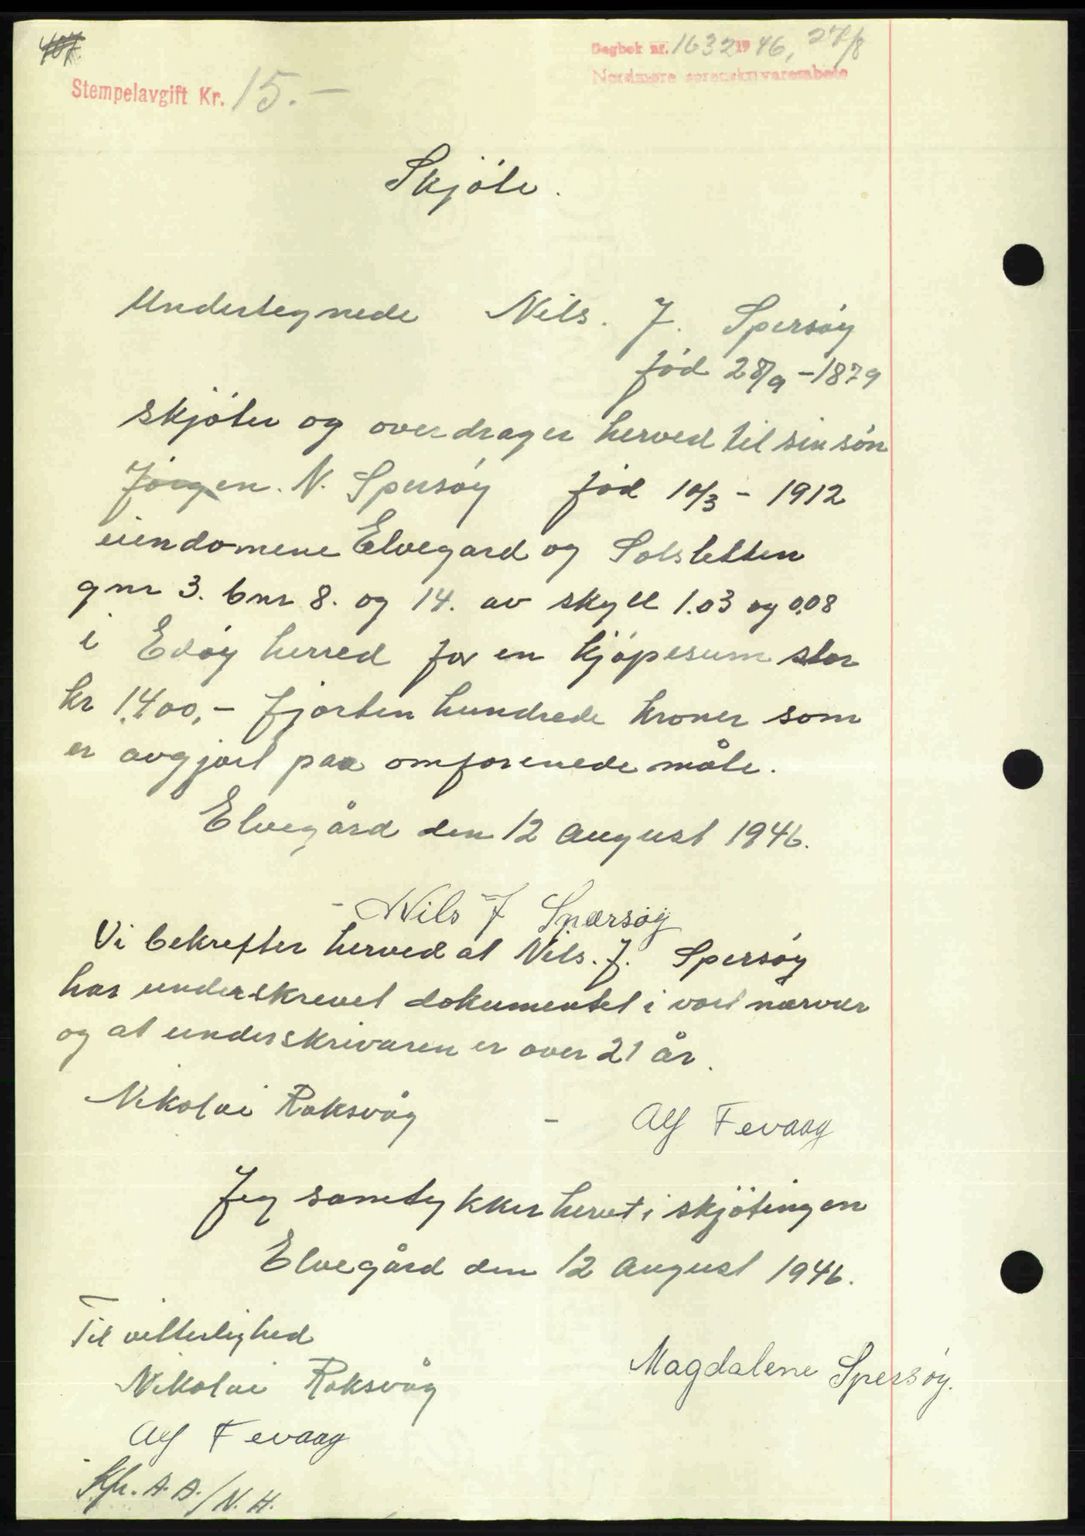 Dagbok nr. 1632 1946, 27/8
Nordmøre sorenskriverembete
Stempelavgift Kr. 15.-
Skjöte.
Undertegnede Nils. J. Spersöy
född 28/9 - 1879
skjöter og overdrager herved til sin sön
Jörgen. N. Spersöy född 10/3 - 1912
eiendomene Elvegard og Solsletten
gnr 3. bnr 8. og 14. av skyll 1.03 og 0.08
i Edöy herred for en kjöpesum stor
kr 1,400,- fjorten hundrede kroner som
er avgjort paa omforenede måte.
Elvegård den 12 august 1946.
- Nils J Spersøy
Vi bekrefter herved at Nils. J. Spersöy
har underskrevet dokumentet i vort nærvær
og at underskrivaren er over 21 år.
Nikolai Roksvåg - Alf Fevaag
Jeg samtykker hervet i skjötingen
Elvegård den 12 august 1946.
Til vitterlighed
Nikolai Roksvåg
Magdalene Spersøy.
Alf Fevaag
Kfr. A.A./N.H.